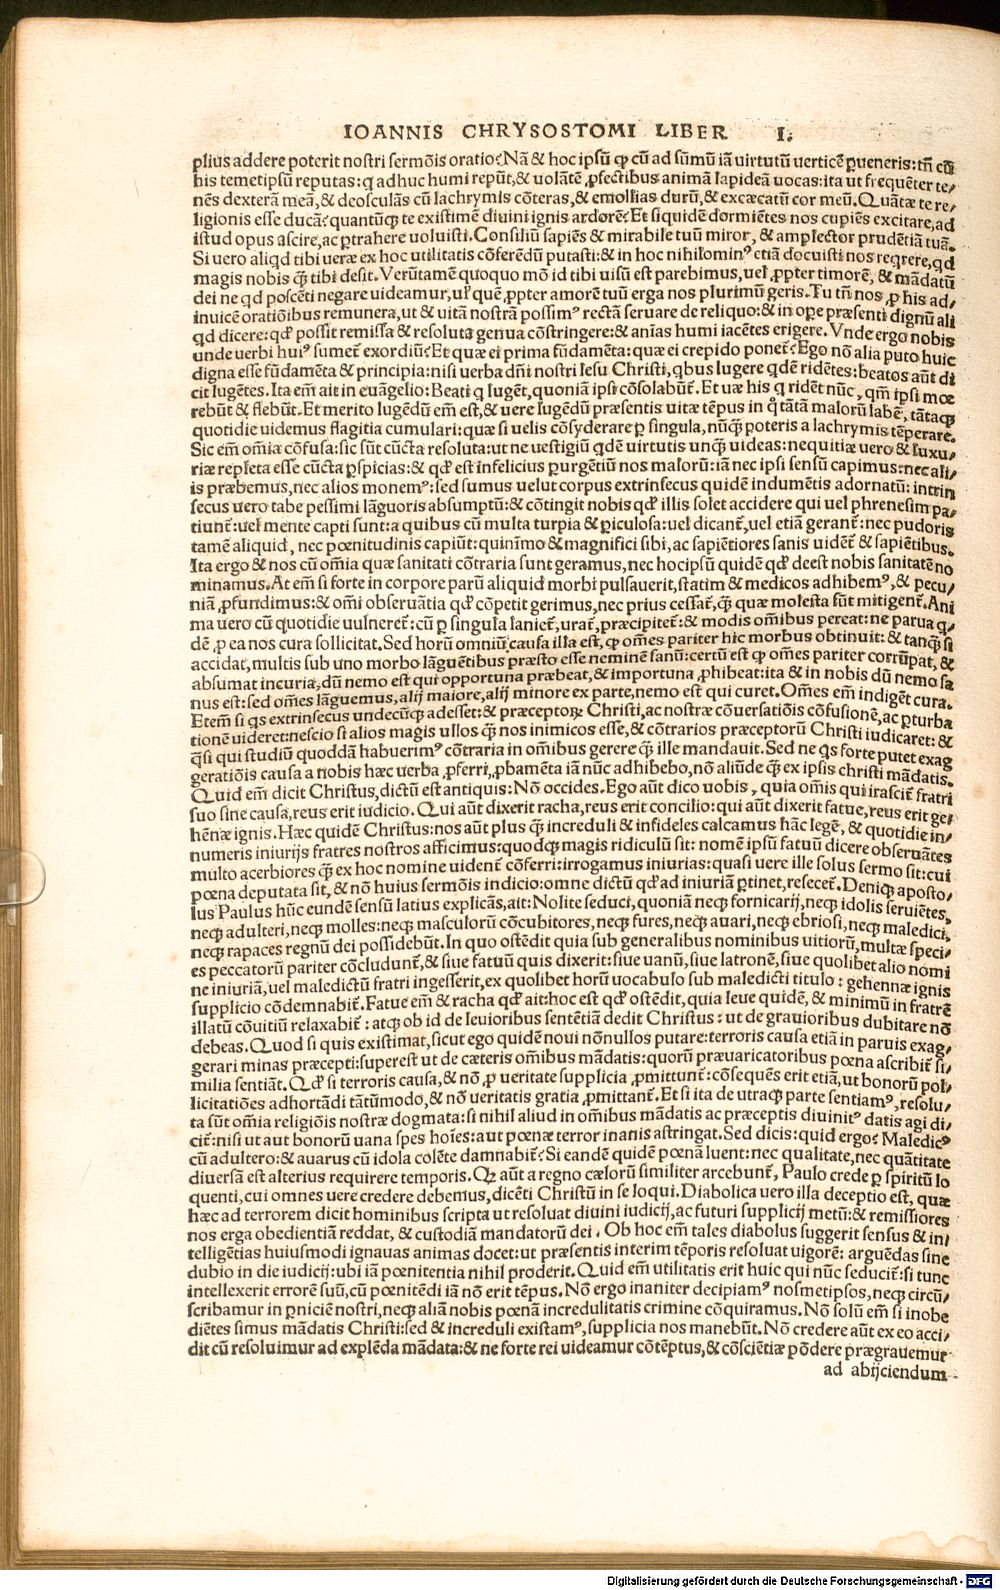 IOANNIS CHRYSOSTOMI LIBER I.
plius addere poterit nostri sermōis oratio? Nā & hoc ipsū ꝙ cū ad sūmū iā uirtutū uerticē ꝑueneris: tn̄ cū
his temetipsū reputas: q adhuc humi repūt, & uolātē ꝓfectibus animā lapideā uocas: ita ut frequēter te/
nēs dexterā meā, & deosculās cū lachrymis cōteras, & emollias durū, & excæcatū cor meū. Quātæ te re/
ligionis esse ducā? quantūꝗ te existimē diuini ignis ardorē? Et siquidē dormiētes nos cupiēs excitare, ad
istud opus ascire, ac ꝑtrahere uoluisti. Consiliū sapiēs & mirabile tuū miror, & amplector prudētiā tuā.
Si uero aliqd tibi ueræ ex hoc utilitatis cōferēdū putasti: & in hoc nihilominꝰ etiā docuisti nos reqrere, qd
magis nobis ꝗ̄ tibi desit. Verūtamē quoquo mō id tibi uisū est parebimus, uel ꝓpter timorē, & mādatū
dei ne qd poscēti negare uideamur, ul̓ quē ꝓpter amorē tuū erga nos plurimū geris. Tu tn̄ nos ꝓ his ad/
inuicē oratiōibus remunera, ut & uitā nostrā possimꝰ rectā seruare de reliquo: & in ope præsenti dignū ali
qd dicere: qd̓ possit remissa & resoluta genua cōstringere: & aīas humi iacētes erigere. Vnde ergo nobis
unde uerbi huiꝰ sumet̄ exordiū? Et quæ ei prima fūdamēta: quæ ei crepido ponet̄? Ego nō alia puto huic
digna esse fūdamēta & principia: nisi uerba dn̄i nostri Iesu Christi, qbus lugere qdē ridētes: beatos aūt di
cit lugētes. Ita em̄ ait in euāgelio: Beati q lugēt, quoniā ipsi cōsolabūt̄. Et uæ his q ridēt nūc, qm̄ ipsi mœ
rebūt & flebūt. Et merito lugēdū em̄ est, & uere lugēdū præsentis uitæ tēpus in q̊ tātā malorū labē, tātaꝗ
quotidie uidemus flagitia cumulari: quæ si uelis cōsyderare ꝑ singula, nūꝗ̄ poteris a lachrymis tēperare.
Sic em̄ omīa cōfusa: sic sūt cūcta resoluta: ut ne uestigiū qdē uirtutis unꝗ̄ uideas: nequitiæ uero & luxu/
riæ repleta esse cūcta ꝑspicias: & qd̓ est infelicius ꝑurgētiū nos malorū: iā nec ipsi sensū capimus: nec ali/
is præbemus, nec alios monemꝰ: sed sumus uelut corpus extrinsecus quidē indumētis adornatū: intrin
secus uero tabe pessimi lāguoris absumptū: & cōtingit nobis qd̓ illis solet accidere qui uel phrenesim pa/
tiunt̄: uel mente capti sunt: a quibus cū multa turpia & ꝑiculosa: uel dicant̄, uel etiā gerant̄: nec pudoris
tamē aliquid, nec pœnitudinis capiūt: quinīmo & magnifici sibi, ac sapiētiores sanis uidēt̄ & sapiētibus.
Ita ergo & nos cū omīa quæ sanitati cōtraria sunt geramus, nec hocipsū quidē qd̓ deest nobis sanitatē no
minamus. At em̄ si forte in corpore parū aliquid morbi pulsauerit, statim & medicos adhibemꝰ, & pecu/
niā ꝓfundimus: & omī obseruātia qd̓ cōpetit gerimus, nec prius cessat̄, ꝗ̄ quæ molesta sūt mitigent̄. Ani
ma uero cū quotidie uulneret̄: cū ꝑ singula laniet̄, urat̄, præcipitet̄: & modis omībus pereat: ne parua q/
dē ꝓ ea nos cura sollicitat. Sed horū omniū causa illa est, ꝙ omēs pariter hic morbus obtinuit: & tanꝗ̄ si
accidat, multis sub uno morbo lāguētibus præsto esse neminē sanū: certū est ꝙ omēs pariter corrūpat, &
absumat incuria, dū nemo est qui opportuna præbeat, & importuna ꝓhibeat: ita & in nobis dū nemo sa
nus est: sed omēs lāguemus, alij maiore, alij minore ex parte, nemo est qui curet. Omēs em̄ indigēt cura.
Etem̄ si qs extrinsecus undecūꝗ adesset: & præceptoꝝ Christi, ac nostræ cōuersatiōis cōfusionē, ac ꝑturba
tionē uideret: nescio si alios magis ullos ꝗ̄ nos inimicos esse, & cōtrarios præceptorū Christi iudicaret: &
q̄si qui studiū quoddā habuerimꝰ cōtraria in omībus gerere ꝗ̄ ille mandauit. Sed ne qs forte putet exag
geratiōis causa a nobis hæc uerba ꝓferri, ꝓbamēta iā nūc adhibebo, nō aliūde ꝗ̄ ex ipsis christi mādatis.
Quid em̄ dicit Christus, dictū est antiquis: Nō occides. Ego aūt dico uobis, quia omīs qui irascit̄ fratri
suo sine causa, reus erit iudicio. Qui aūt dixerit racha, reus erit concilio: qui aūt dixerit fatue, reus erit ge/
hēnæ ignis. Hæc quidē Christus: nos aūt plus ꝗ̄ increduli & infideles calcamus hāc legē, & quotidie in/
numeris iniurijs fratres nostros afficimus: quodꝗ magis ridiculū sit: nomē ipsū fatuū dicere obseruātes
multo acerbiores ꝗ̄ ex hoc nomine uident̄ cōferri: irrogamus iniurias: quasi uere ille solus sermo sit: cui
pœna deputata sit, & nō huius sermōis indicio: omne dictū qd̓ ad iniuriā ꝑtinet, resecet̄. Deniꝗ aposto/
lus Paulus hūc eundē sensū latius explicās, ait: Nolite seduci, quoniā neꝗ fornicarij, neꝗ idolis seruiētes,
neꝗ adulteri, neꝗ molles: neꝗ masculorū cōcubitores, neꝗ fures, neꝗ auari, neꝗ ebriosi, neꝗ maledici,
neꝗ rapaces regnū dei possidebūt. In quo ostēdit quia sub generalibus nominibus uitiorū, multæ speci/
es peccatorū pariter cōcludunt̄, & siue fatuū quis dixerit: siue uanū, siue latronē, siue quolibet alio nomi
ne iniuriā, uel maledictū fratri ingesserit, ex quolibet horū uocabulo sub maledicti titulo: gehennæ ignis
supplicio cōdemnabit̄. Fatue em̄ & racha qd̓ ait: hoc est qd̓ ostēdit, quia leue quidē, & minimū in fratrē
illatū cōuitiū relaxabit̄: atꝗ ob id de leuioribus sentētiā dedit Christus: ut de grauioribus dubitare nō
debeas. Quod si quis existimat, sicut ego quidē noui nōnullos putare: terroris causa etiā in paruis exag/
gerari minas præcepti: superest ut de cæteris omībus mādatis: quorū præuaricatoribus pœna ascribit̄ si/
milia sentiāt. Qd̓ si terroris causa, & nō ꝓ ueritate supplicia ꝓmittunt̄: cōsequēs erit etiā, ut bonorū pol/
licitatiōes adhortādi tātūmodo, & nō ueritatis gratia ꝓmittant̄. Et si ita de utraꝗ parte sentiamꝰ, resolu/
ta sūt omīa religiōis nostræ dogmata: si nihil aliud in omībus mādatis ac præceptis diuinitꝰ datis agi di/
cit̄: nisi ut aut bonorū uana spes hoīes: aut pœnæ terror inanis astringat. Sed dicis: quid ergo? Maledicꝰ
cū adultero: & auarus cū idola colēte damnabit̄? Si eandē quidē pœnā luent: nec qualitate, nec quātitate
diuersā est alterius requirere temporis. Qꝫ aūt a regno cælorū similiter arcebunt̄, Paulo crede ꝑ spiritū lo
quenti, cui omnes uere credere debemus, dicēti Christū in se loqui. Diabolica uero illa deceptio est, quæ
hæc ad terrorem dicit hominibus scripta ut resoluat diuini iudicij, ac futuri supplicij metū: & remissiores
nos erga obedientiā reddat, & custodiā mandatorū dei. Ob hoc em̄ tales diabolus suggerit sensus & in/
telligētias huiusmodi ignauas animas docet: ut præsentis interim tēporis resoluat uigorē: arguēdas sine
dubio in die iudicij: ubi iā pœnitentia nihil proderit. Quid em̄ utilitatis erit huic qui nūc seducit̄: si tunc
intellexerit errorē suū, cū pœnitēdi iā nō erit tēpus. Nō ergo inaniter decipiamꝰ nosmetipsos, neꝗ circū/
scribamur in ꝑniciē nostri, neꝗ aliā nobis pœnā incredulitatis crimine cōquiramus. Nō solū em̄ si inobe
diētes simus mādatis Christi: sed & increduli existamꝰ, supplicia nos manebūt. Nō credere aūt ex eo acci/
dit cū resoluimur ad explēda mādata: & ne forte rei uideamur cōtēptus, & cōsciētiæ pōdere prægrauemur
ad abijciendum
Digitalisierung gefördert durch die Deutsche Forschungsgemeinschaft - DFG